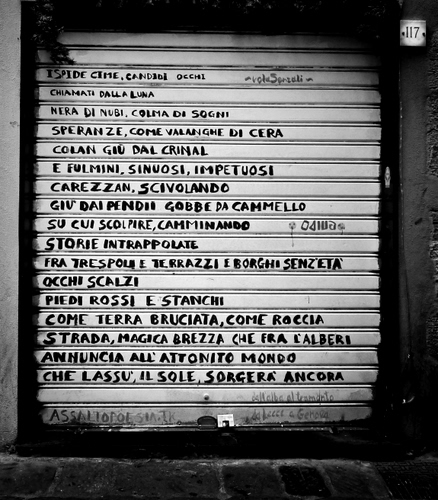 117
ISPIDE CIME, CANDIDI OCCHI
CHIAMATI DALLA LUNA
NERA DI NUBI, COLMA DI SOGNI
SPERANZE, COME VALANGHE DI CERA
COLAN GIÙ DAL CRINAL
E FULMINI, SINUOSI, IMPETUOSI
CAREZZAN, SCIVOLANDO
GIU' DAI PENDII GOBBE DA CAMMELLO
SU CUI SCOLPIRE, CAMMINANDO
STORIE INTRAPPOLATE
FRA TRESPOLI E TERRAZZI E BORGHI SENZ'ETA'
OCCHI SCALZI
PIEDI ROSSI E STANCHI
COME TERRA BRUCIATA, COME ROCCIA
STRADA, MAGICA BREZZA CHE FRA L'ALBERI
ANNUNCIA ALL'ATTONITO MONDO
CHE LASSU', IL SOLE, SORGERA' ANCORA
dall'alba al tramonto
da Lecce a Genova